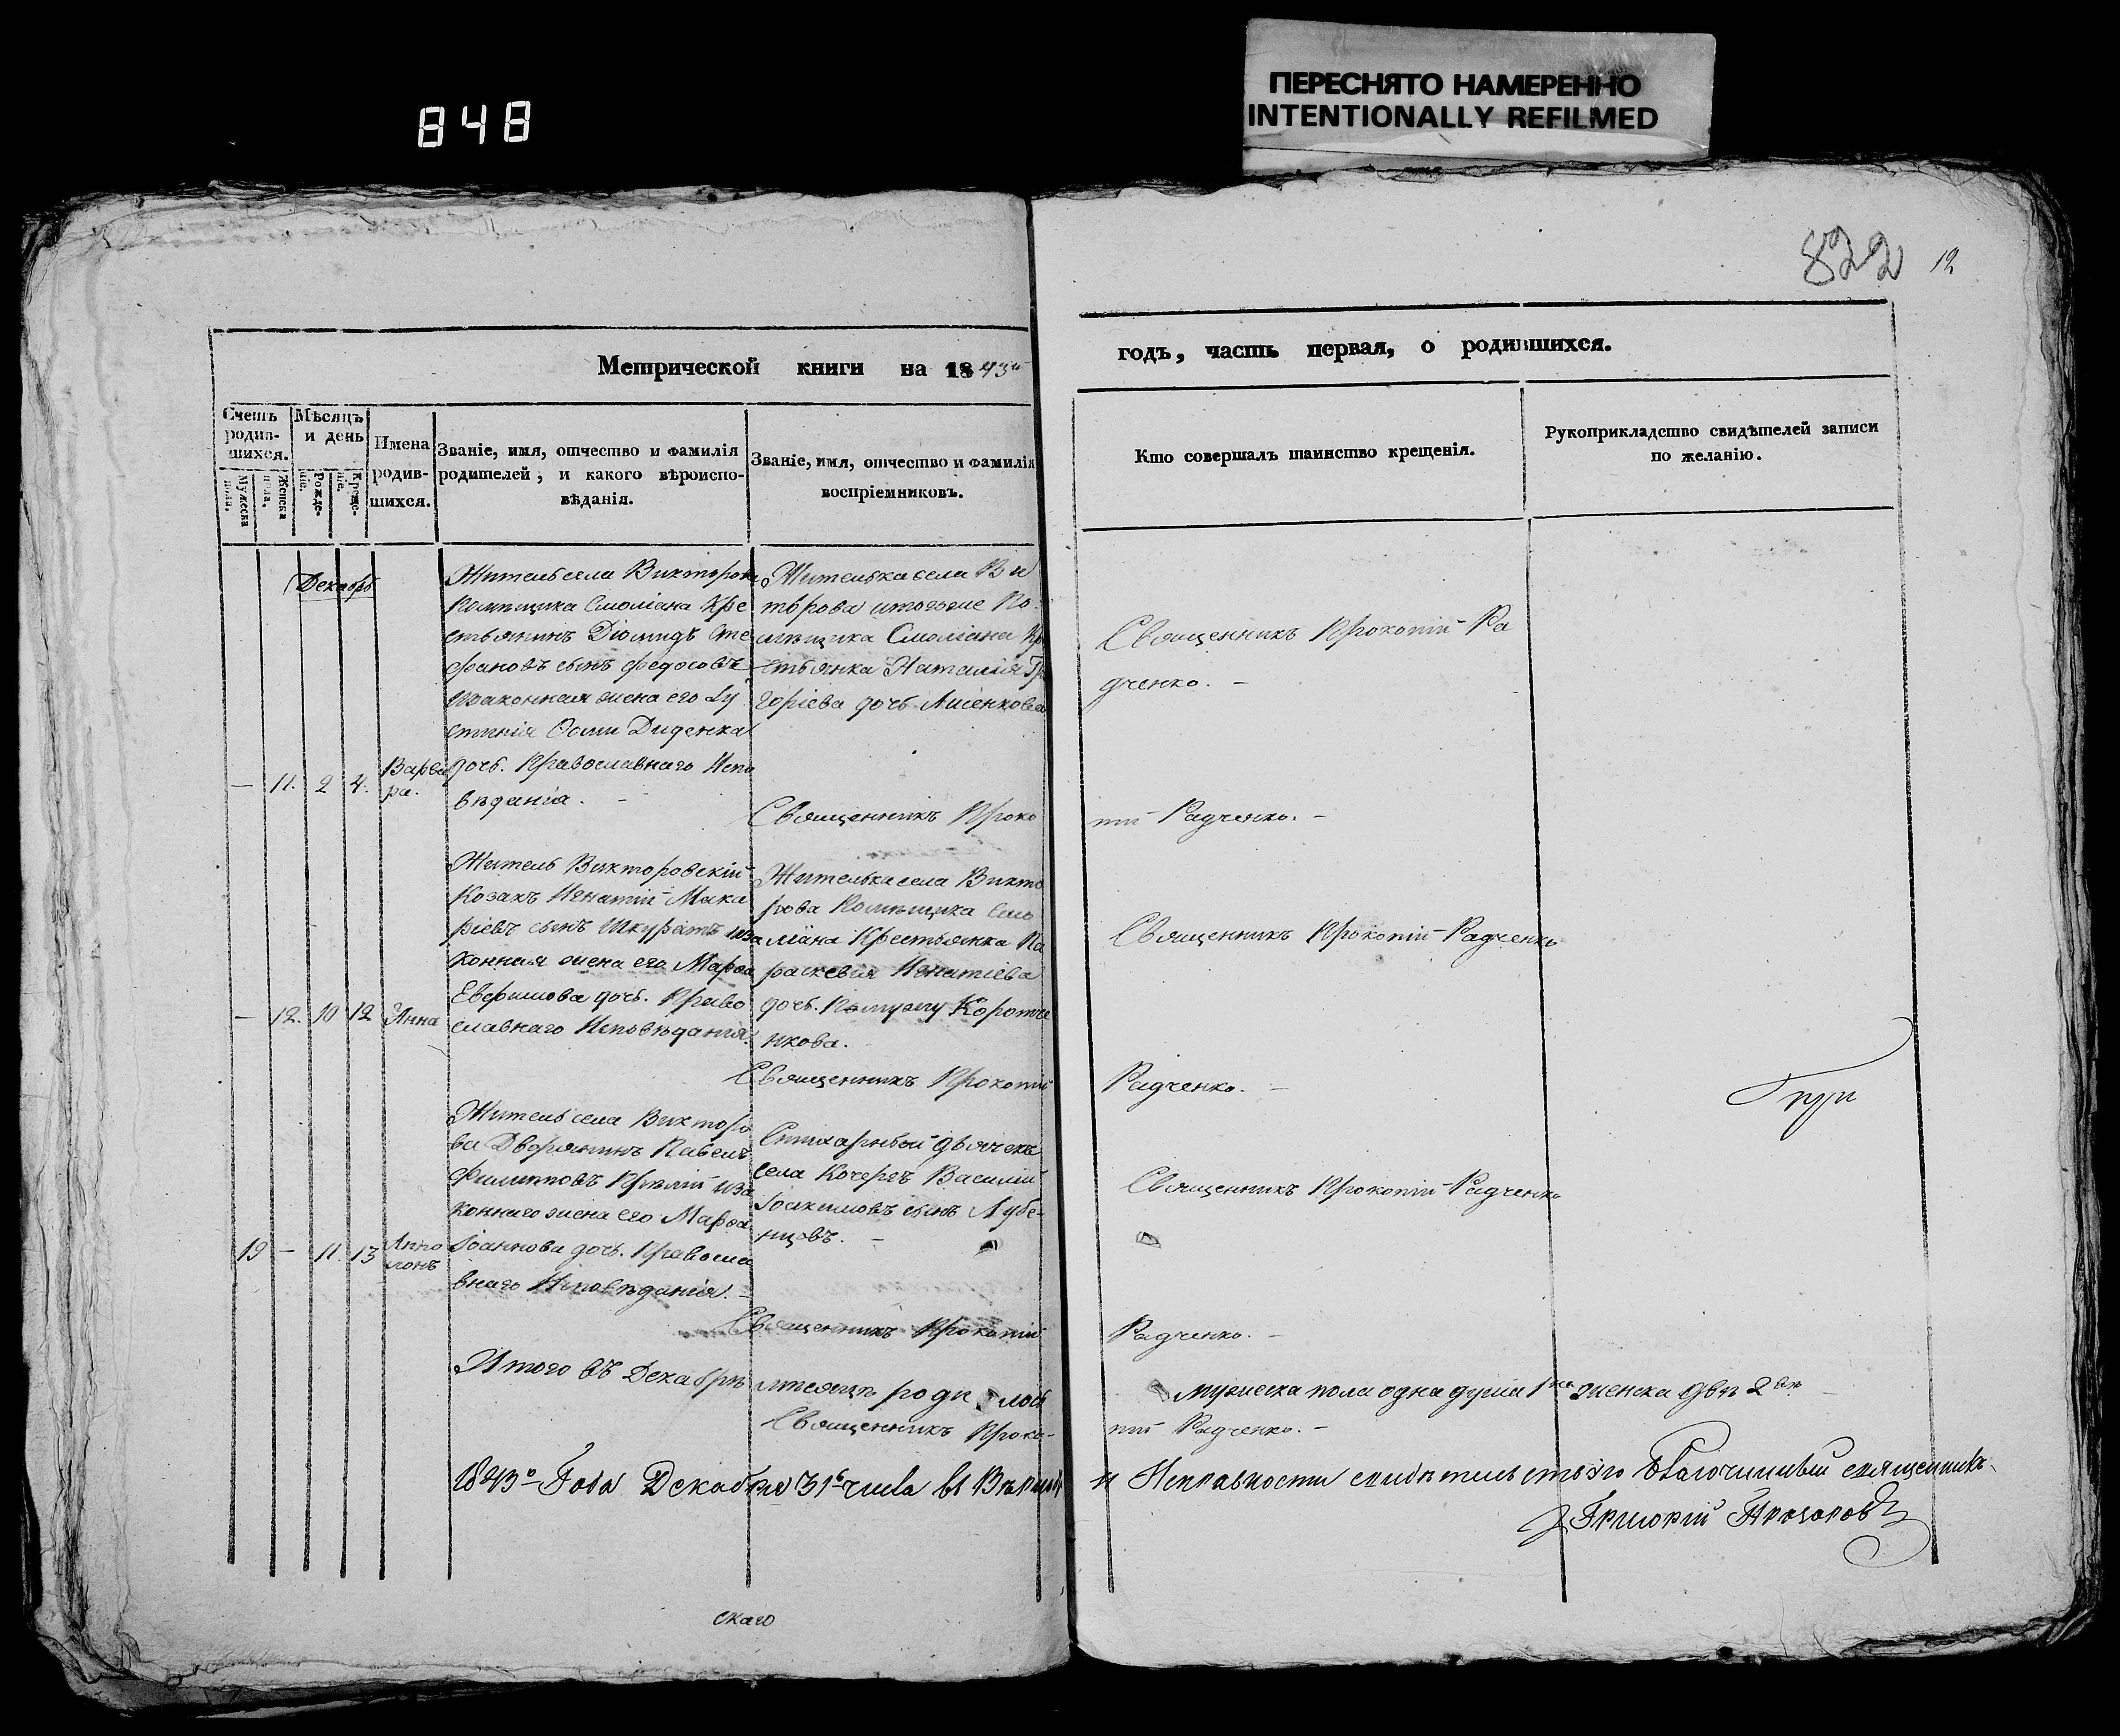 848
ПЕРЕСНЯТО НАМЕРЕННО
INTENTIONALLY REFILMED
822 12
Метрической книги на 1843й
годъ, часть первая, о родившихся.
Счетъ родив-шихся.
Мужеска пола.
Женска пола.
Мѣсяцъ и день
Рожде-ніе.
Креще-ніе.
Имена родив-шихся.
Званіе, имя, отчество и фамилія
родителей, и какого вѣроиспо-
вѣданія.
Званіе, имя, отчество и фамилія
воспріемниковъ.
Кто совершалъ таинство крещенія.
Рукоприкладство свидѣтелей записи
по желанію.
Декабрь
— 11. 2 4. Варва
ра.
Житель села Викторова
Помѣщика Смоліана Кре
стьянинъ Діомидъ Сте
фановъ сынъ Федосовъ
изаконная жена его
Диденка
дочь. Православнаго Испо
вѣданія. —
Жителька села Ви
кторова итогоже По
мѣщика Смоліана Кре
стьянка Наталія Гри
горіева дочь Лисенкова
Священникъ Прокопій Ра
дченко. —
Священникъ Проко
пій Радченко. —
— 12. 10 12 Анна
Житель Викторовскій
Козакъ Игнатій Мака
ріевъ сынъ Шкуратъ иза
конная жена его Марѳа
Евфимова дочь. Право
славнаго Исповѣданія.
Жителька села Викто
рова Помѣщика Смо
ліана Крестьянка Па
раскевія Игнатіева
дочь. По мужу Коротче
нкова.
Священникъ Прокопій Радченко
Священникъ Прокопій
Радченко. —
19 — 11. 13 Аппо
лонъ
Житель села Викторо
ва Дворянинъ Павелъ
Филипповъ иза
коннаго жена его Марѳа
Іоаннова дочь. Правосла
внаго Исповѣданія. —
дьячекъ
села Кочергъ Василій
Іоакимовъ сынъ Лубе-
нцовъ. —
Священникъ Прокопій Радченко
Священникъ Прокопій
Радченко. —
Итого въ Декабрѣ мѣсяцѣ родилось
мужеска пола одна душа 1на женска двѣ 2вѣ —
Священникъ Проко-
пій Радченко. —
1843о Года Декабря 31го числа въ
Исправности Благочинный священникъ
Григорій
скаго